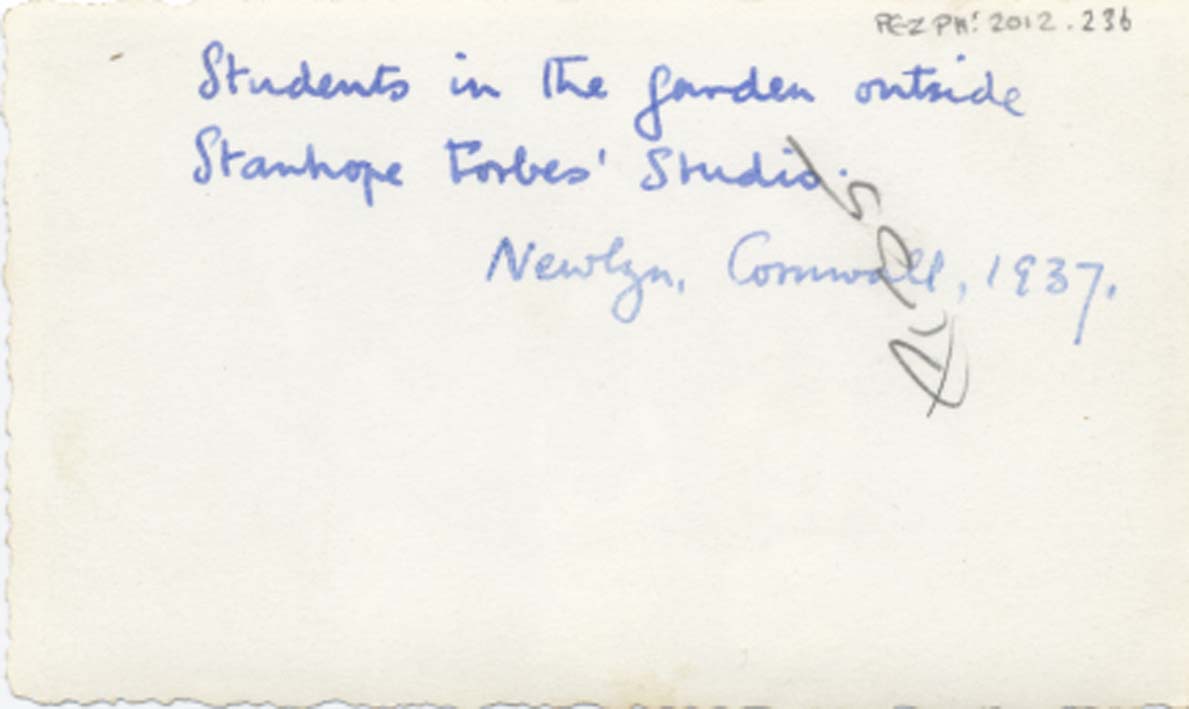 PEZPH:2012.236
Students in the garden outside
Stanhope Forbes' Studio.
Newlyn, Cornwall, 1937.